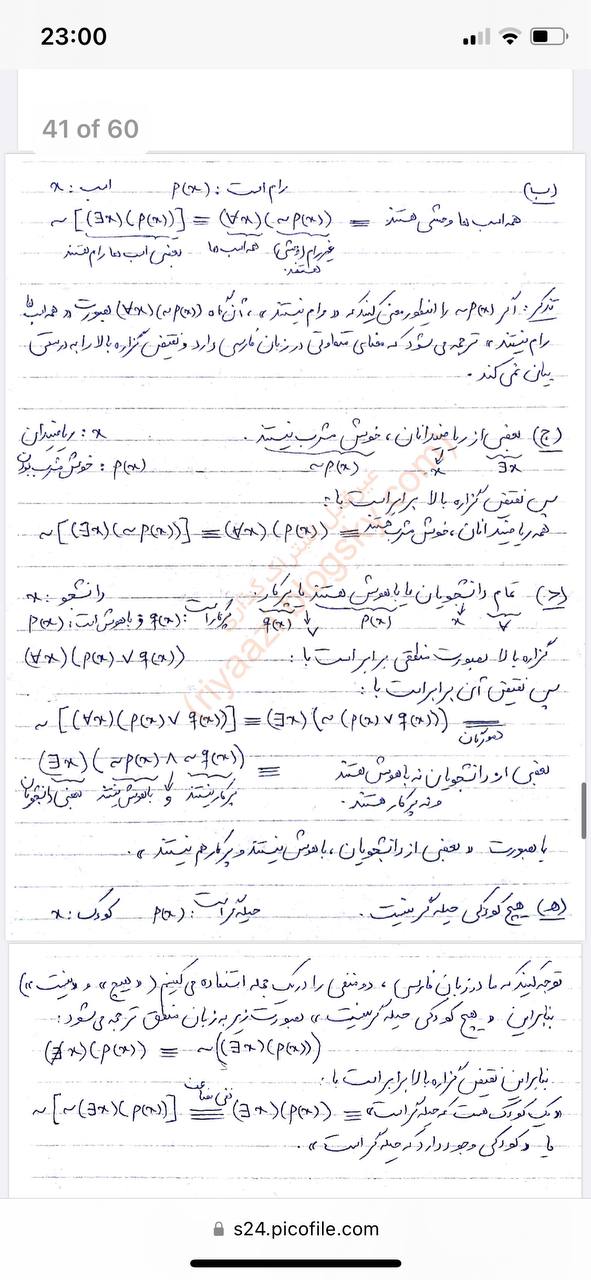 23:00
41 of 60
ب) x : اسب p(x) : رام است
~[(∃x)(p(x))] ≡ (∀x)(~p(x)) ≡ همه اسب ها وحشی هستند
بعضی اسب ها رام هستند همه اسب ها غیر رام (وحشی) هستند
تذکر: اگر ~p(x) را اینطور معنی کنید که « رام نیستند »، آن گاه (∀x)(~p(x)) بصورت « همه اسب ها
رام نیستند » ترجمه می شود که معنای متفاوتی در زبان فارسی دارد و نقیض گزاره بالا را به درستی
بیان نمی کند .
ج) بعضی از ریاضیدانان ، خوش مشرب نیستند . x : ریاضیدان
∃x x ~p(x) p(x) : خوش مشرب بودن
پس نقیض گزاره بالا برابر است با :
~[(∃x)(~p(x))] ≡ (∀x)(p(x)) ≡ همه ریاضیدانان ، خوش مشرب هستند
د) تمام دانشجویان یا باهوش هستند یا پرکار . x : دانشجو
∀ x p(x) ∨ q(x) p(x) : باهوش است و q(x) : پرکار است
گزاره بالا بصورت منطقی برابر است با : (∀x)(p(x) ∨ q(x))
پس نقیض آن برابر است با :
~[(∀x)(p(x) ∨ q(x))] ≡ (∃x)(~(p(x) ∨ q(x))) ≡ دمورگان
(∃x)(~p(x) ∧ ~q(x)) ≡ بعضی از دانشجویان نه باهوش هستند
و نه پرکار هستند .
بعضی دانشجویان باهوش نیستند و پرکار نیستند
یا بصورت « بعضی از دانشجویان ، باهوش نیستند و پرکار هم نیستند » .
هـ) هیچ کودکی حیله گر نیست . x : کودک p(x) : حیله گر است
توجه کنید که ما در زبان فارسی ، دو منفی را در یک جمله استفاده می کنیم ( « هیچ » و « نیست » )
بنابراین « هیچ کودکی حیله گر نیست » بصورت زیر به زبان منطق ترجمه می شود :
(∄x)(p(x)) ≡ ~((∃x)(p(x)))
بنابراین نقیض گزاره بالا برابر است با :
~[~(∃x)(p(x))] ≡ نفی مضاعف (∃x)(p(x)) ≡ « یک کودک هست که حیله گر است »
یا « کودکی وجود دارد که حیله گر است » .
(riyaazi.blogsky.com)
s24.picofile.com